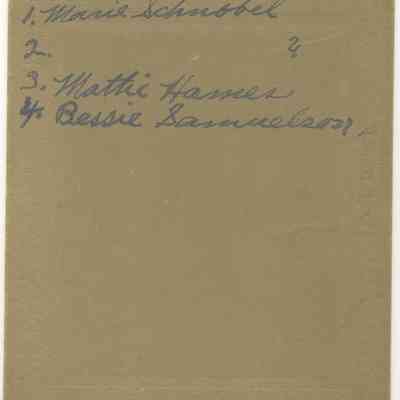 1. Marie Schnobel
2. ?
3. Mattie Hames
4. Bessie Samuelson,